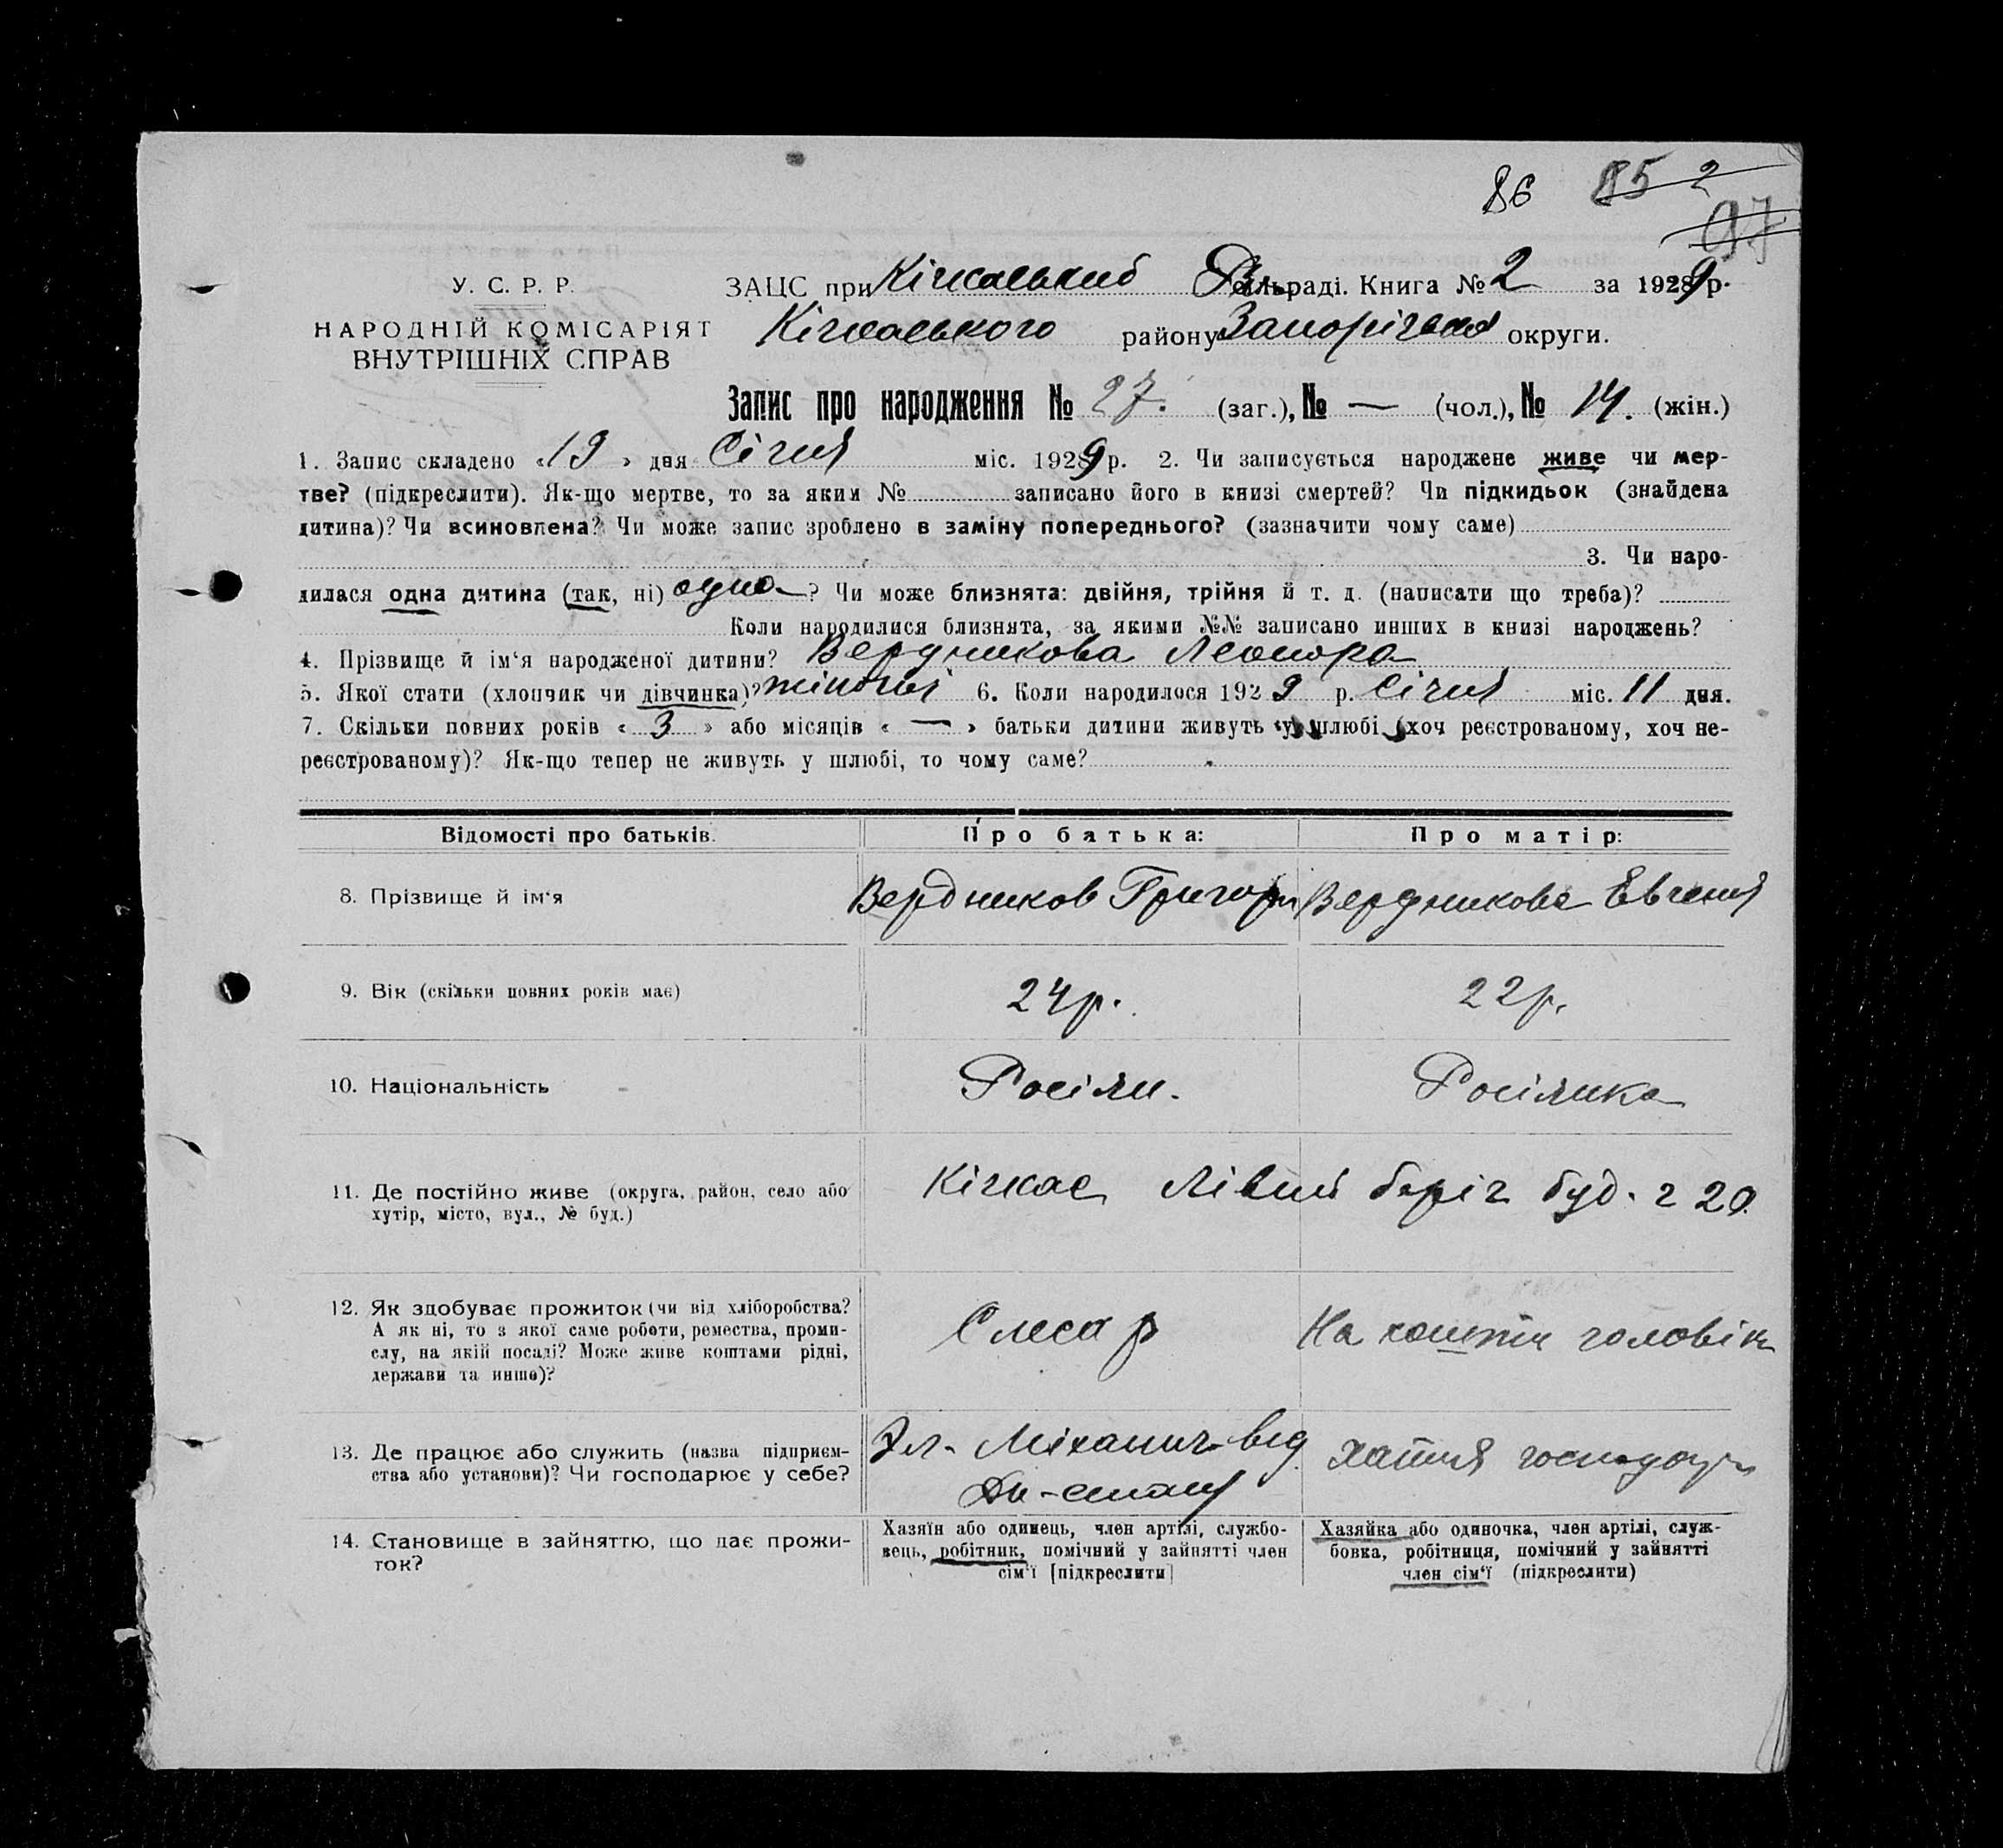 86 85 2
97
У. С. Р. Р.
НАРОДНІЙ КОМІСАРІЯТ
ВНУТРІШНІХ СПРАВ
ЗАЦС при Кічкаський Сільраді. Книга № 2 за 1929 р.
Кічкаського району Запорізької округи.
Запис про народження № 27. (заг.), № — (чол.), № 14. (жін.)
1. Запис складено «19» дня Січня міс. 1929 р. 2. Чи записується народжене живе чи мер-
тве? (підкреслити). Як-що мертве, то за яким № записано його в книзі смертей? Чи підкидьок (знайдена
дитина)? Чи всиновлена? Чи може запис зроблено в заміну попереднього? (зазначити чому саме)
3. Чи наро-
дилася одна дитина (так, ні) одна? Чи може близнята: двійня, трійня й т. д. (написати що треба)?
Коли народилися близнята, за якими №№ записано инших в книзі народжень?
4. Прізвище й ім‘я народженої дитини? Вердникова Леонора
5. Якої стати (хлопчик чи дівчинка)? жіночої 6. Коли народилося 1929 р. Січня міс. 11 дня.
7. Скільки повних років «3» або місяців «—» батьки дитини живуть у шлюбі (хоч реєстрованому, хоч не-
реєстрованому)? Як-що тепер не живуть у шлюбі, то чому саме?
Відомості про батьків. Про батька: Про матір:
8. Прізвище й ім‘я Вердников Григори Вердникова Евгения
9. Вік (скільки повних років має) 24 р. 22 р.
10. Національність Росіян. Росіянка
11. Де постійно живе (округа, район, село або
хутір, місто, вул., № буд.)
Кічкас Лівий беріг буд. ч 20.
12. Як здобуває прожиток (чи від хліборобства?
А як ні, то з якої саме роботи, ремества, проми-
слу, на якій посаді? Може живе коштами рідні,
держави та инше)?
Слесар На кошти чоловіка
13. Де працює або служить (назва підприєм-
ства або установи)? Чи господарює у себе?
Эл. Механич. від.
Хатня господар
14. Становище в зайняттю, що дає прожи-
ток?
Хазяїн або одинець, член артілі, службо-
вець, робітник, помічний у зайнятті член
сім‘ї [підкреслити]
Хазяйка або одиночка, член артілі, служ-
бовка, робітниця, помічний у зайнятті
член сім‘ї (підкреслити)